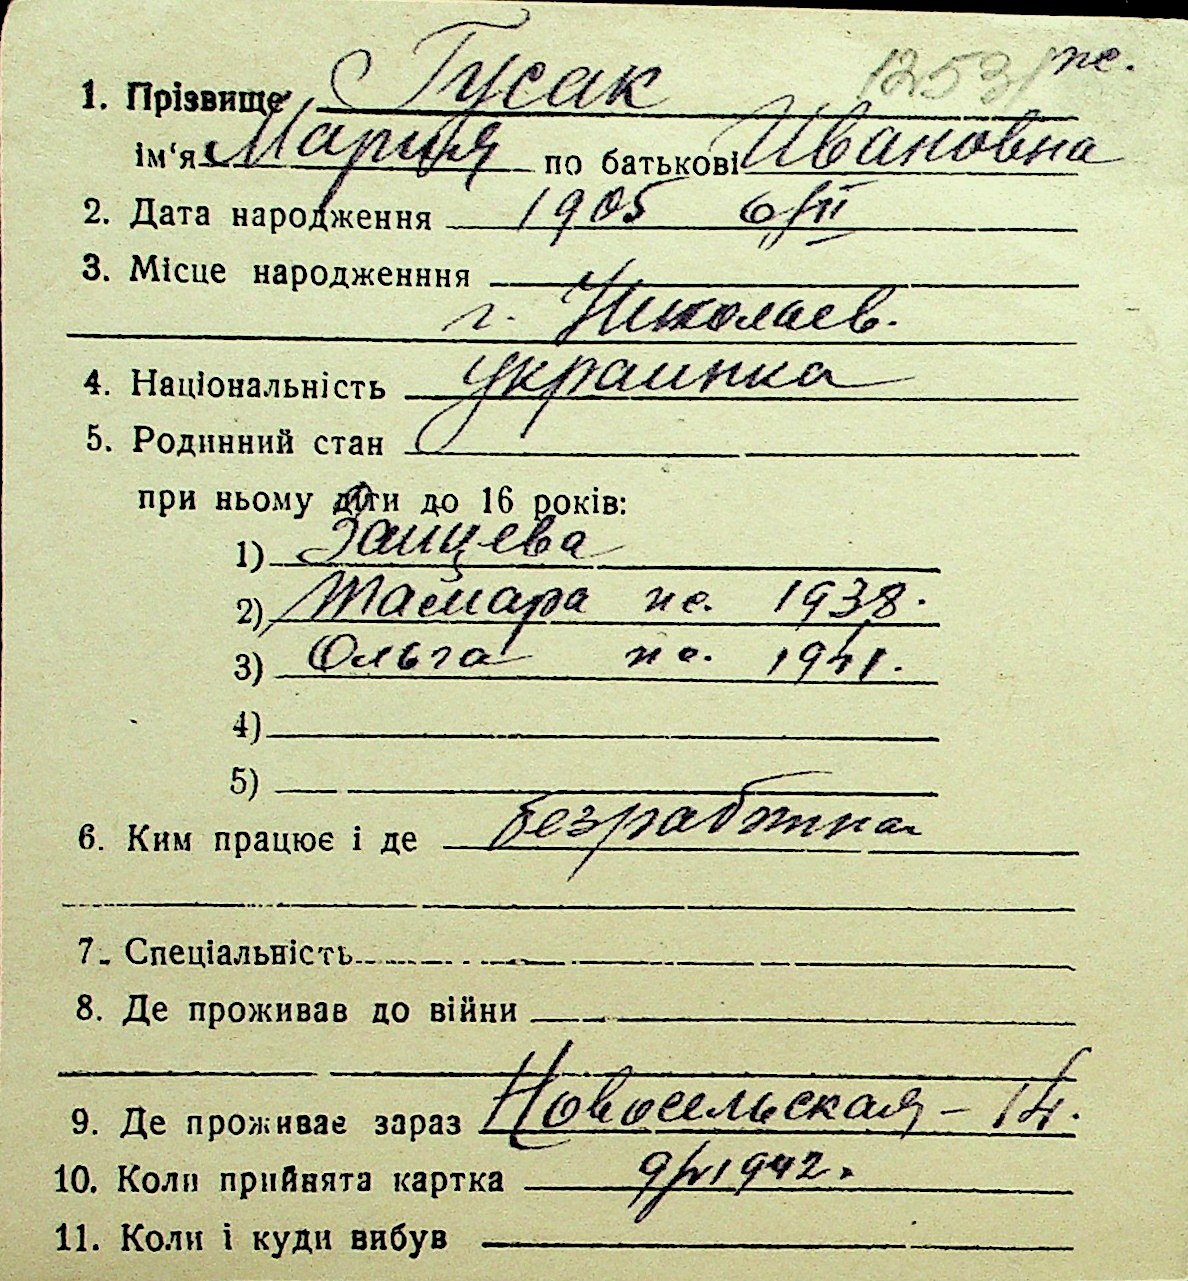 1253/ ж.
1. Прізвище Гусак
ім'я Мария по батькові Ивановна
2. Дата народження 1905 6/II
3. Місце народженння
г. Николаев.
4. Національність украинка
5. Родинний стан
при ньому діти до 16 років:
1) Зайцева
2) Тамара ж. 1938.
3) Ольга ж. 1941.
4)
5)
6. Ким працює і де безрабітна
7. Спеціальність
8. Де проживав до війни
9. Де проживає зараз Новосельская – 14.
10. Коли прийнята картка 1942.
11. Коли і куди вибув